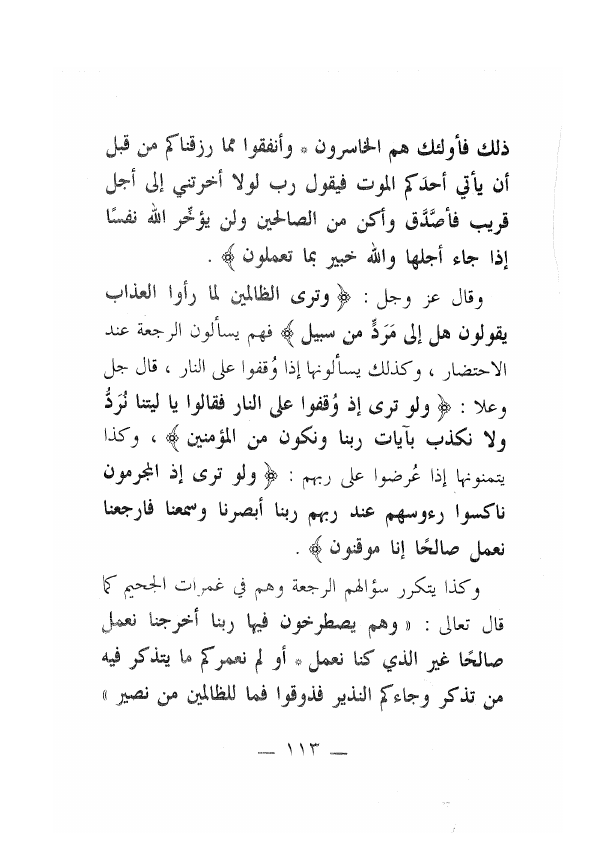 ذلك فأولئك هم الخاسرون * وأنفقوا مما رزقناكم من قبل
أن يأتي أحدكم الموت فيقول رب لولا أخرتني إلى أجل
قريب فأصَّدَّق وأكن من الصالحين ولن يؤخِّر الله نفسًا
إذا جاء أجلها والله خبير بما تعملون ﴾ .
وقال عز وجل : ﴿ وترى الظالمين لما رأوا العذاب
يقولون هل إلى مَرَدٍّ من سبيل ﴾ فهم يسألون الرجعة عند
الاحتضار ، وكذلك يسألونها إذا وُقفوا على النار ، قال جل
وعلا : ﴿ ولو ترى إذ وُقفوا على النار فقالوا يا ليتنا نُرَدُّ
ولا نكذب بآيات ربنا ونكون من المؤمنين ﴾ ، وكذا
يتمنونها إذا عُرضوا على ربهم : ﴿ ولو ترى إذ المجرمون
ناكسوا رءوسهم عند ربهم ربنا أبصرنا وسمعنا فارجعنا
نعمل صالحًا إنا موقنون ﴾ .
وكذا يتكرر سؤالهم الرجعة وهم في غمرات الجحيم كما
قال تعالى : « وهم يصطرخون فيها ربنا أخرجنا نعمل
صالحًا غير الذي كنا نعمل * أو لم نعمركم ما يتذكر فيه
من تذكر وجاءكم النذير فذوقوا فما للظالمين من نصير »
— ١١٣ —